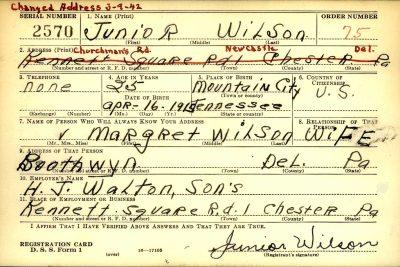 Changed Address 3-9-42
SERIAL NUMBER 1. NAME (Print) ORDER NUMBER
2570 JUNIOR WILSON 75
(First) (Middle) (Last)
2. ADDRESS (Print) Churchman's Rd. Newcastle Del.
Kennett Square Rd1 Chester Pa
(Number and street or R. F. D. number) (Town) (County) (State)
3. TELEPHONE 4. AGE IN YEARS 5. PLACE OF BIRTH 6. COUNTRY OF CITIZENSHIP
none 25 Mountain City U.S.
DATE OF BIRTH (Town or county)
Apr-16. Tennessee
(Exchange) (Number) (Mo.) (Day) (Yr.) (State or country)
7. NAME OF PERSON WHO WILL ALWAYS KNOW YOUR ADDRESS 8. RELATIONSHIP OF THAT PERSON
Margret Wilson WIFE
(Mr., Mrs., Miss) (First) (Middle) (Last)
9. ADDRESS OF THAT PERSON
Boothwyn Del. Pa
(Number and street or R. F. D. number) (Town) (County) (State)
10. EMPLOYER'S NAME
H. J. Walton, Son's
11. PLACE OF EMPLOYMENT OR BUSINESS
Kennett Square R.d.1 Chester Pa
(Number and street or R. F. D. number) (Town) (County) (State)
I AFFIRM THAT I HAVE VERIFIED ABOVE ANSWERS AND THAT THEY ARE TRUE.
REGISTRATION CARD
D. S. S. Form 1 (over) 16—17105 Junior Wilson
(Registrant's signature)